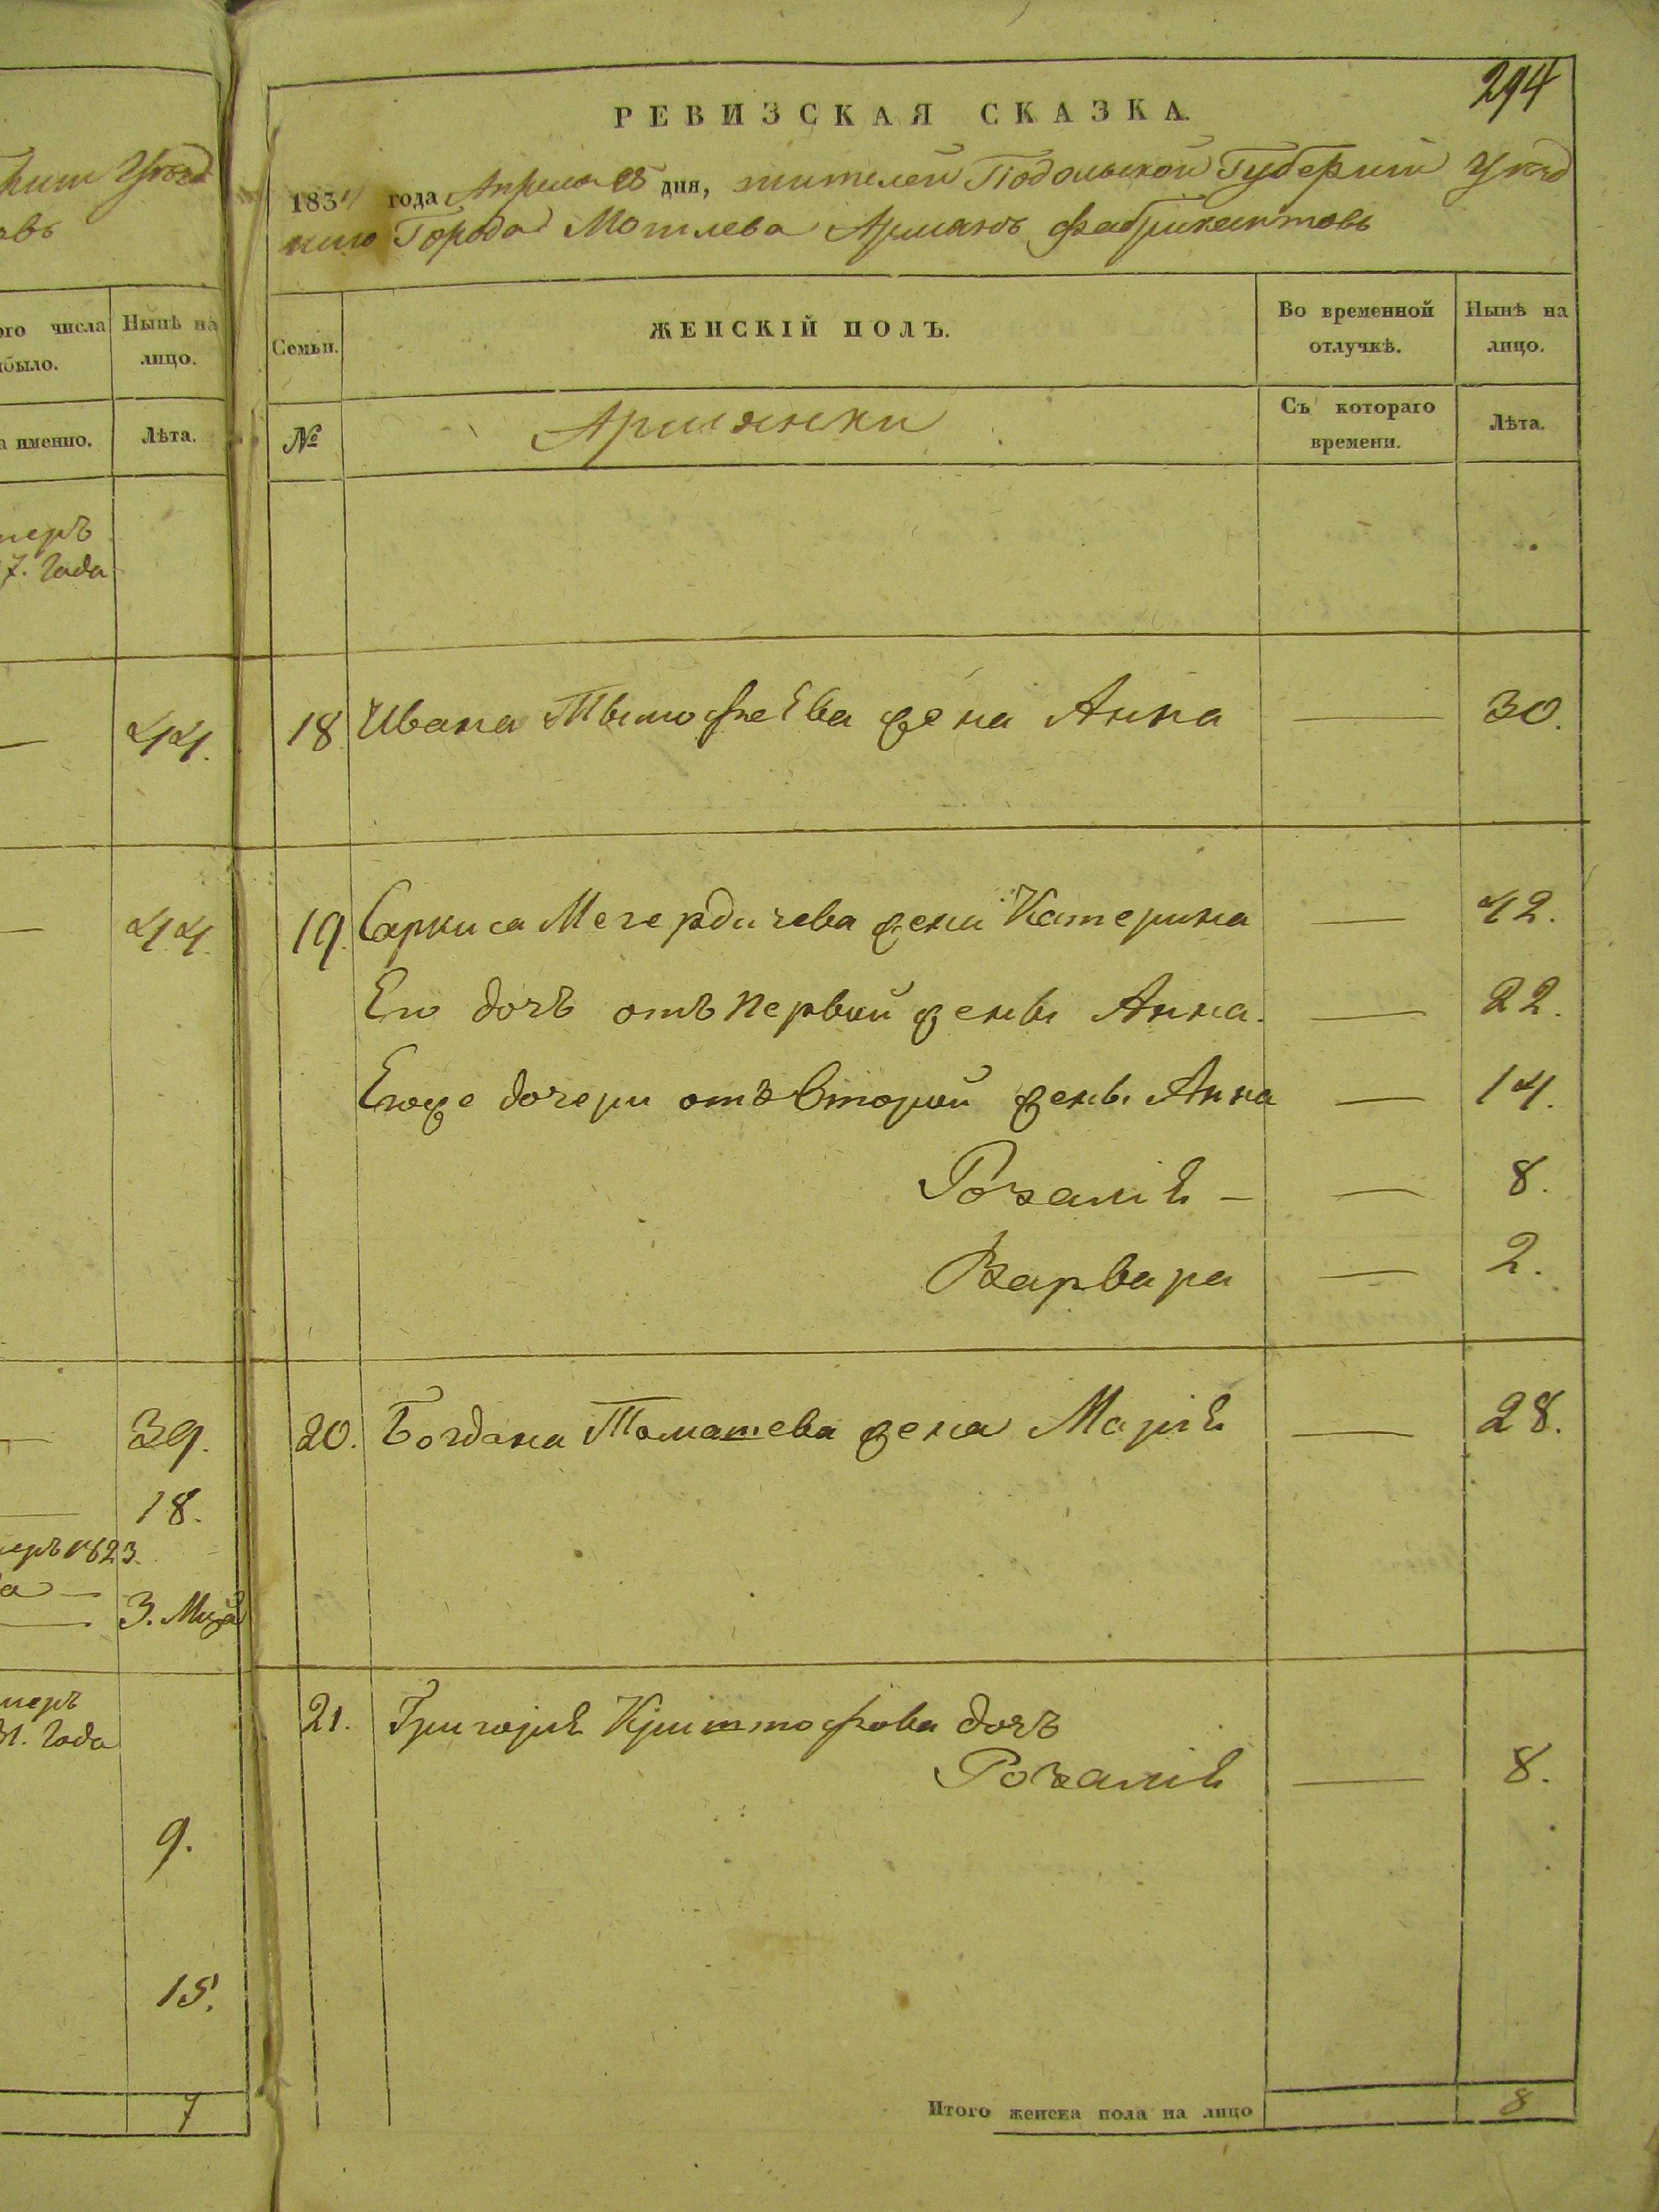 294
РЕВИЗСКАЯ СКАЗКА.
1834 года Апреля 28 дня, жителей Подольской Губернии Уезд
наго Города Могилева Армянъ фабрикантовъ
Семьи. ЖЕНСКІЙ ПОЛЪ. Во временной отлучкѣ. Нынѣ на лицо.
№ Армянки Съ котораго времени. Лѣта.
18 Ивана Тымофеева жена Анна — 30.
19. Саркиса Мегердичева жена Катерина — 42.
Его дочь отъ первой жены Анна. — 22.
Егоже дочери отъ второй жены Анна — 14.
Розалія — — 8.
Варвара — 2.
20. Богдана Томашева жена Марія — 28.
21. Григорія Криштофова дочъ
Розалія — 8.
Итого женска пола на лицо 8
Уезд
овъ
ого числа Нынѣ на
было. лицо.
а именно. Лѣта.
меръ
7. Года
— 44.
— 44.
— 39.
— 18.
меръ 1823.
а —
— 3. Мца
меръ
31. Года
9.
15.
7